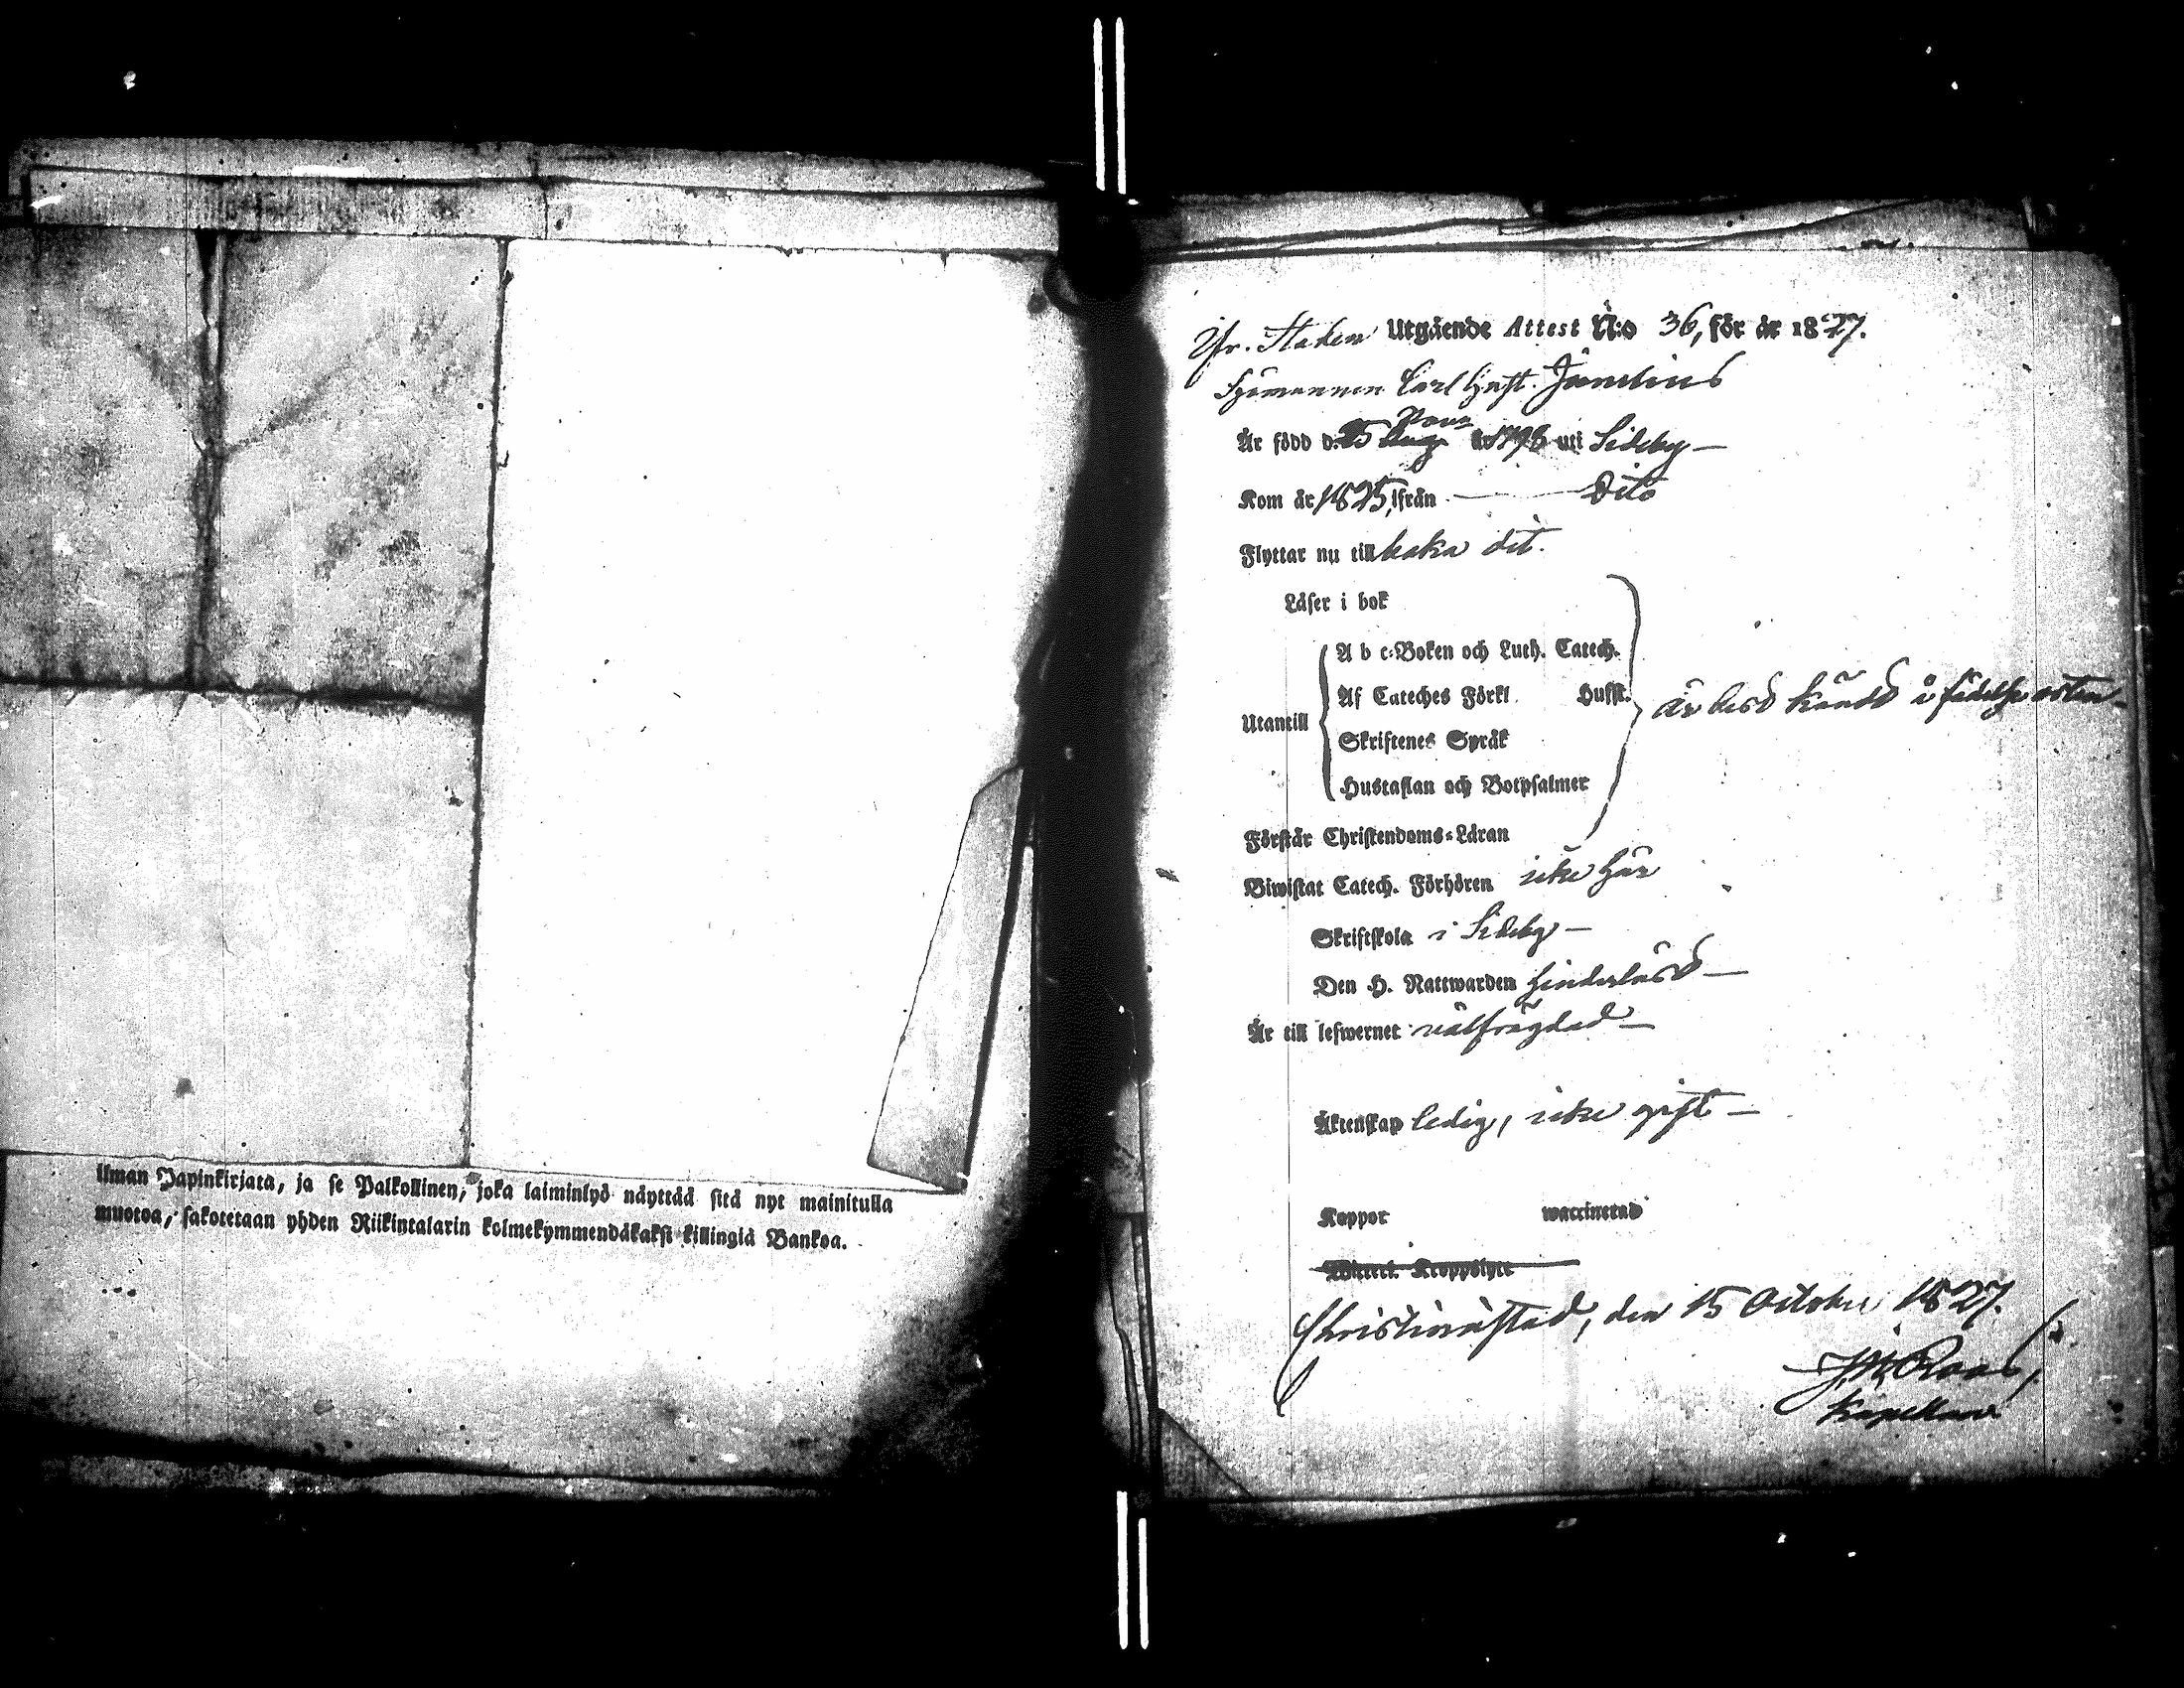 ilman Papinkirjata, ja se Palkollinen, joka laiminlyö näyttää sitä nyt mainitulla
muotoa, sakotetaan yhden Riikintalarin kolmekymmendäkaksi killingiä Bankoa.
fr. Staden Utgående Attest N:o 36, för år 1827.
Sjömannen Carl Gust.
Är född d. 25 Nov. år 1798 uti Sideby —
Kom år 1825, ifrån — Dito
Flyttar nu till baka dit.
Läser i bok
A b c-Boken och Luth. Catech.
Af Cateches Förkl. Hufst. är bäst känd i födelse orten.
Utantill
Skriftenes Språk
Hustaflan och Botpsalmer
Förstår Christendoms-Läran
Biwistat Catech. Förhören icke här
Skriftskola i Sideby —
Den H. Nattwarden hinderlös —
Är till lefwernet välfrägdad —
Äktenskap ledig, icke gift —
Koppor waccinerad
Christinæstad, den 15 October 1827.
Kapellan